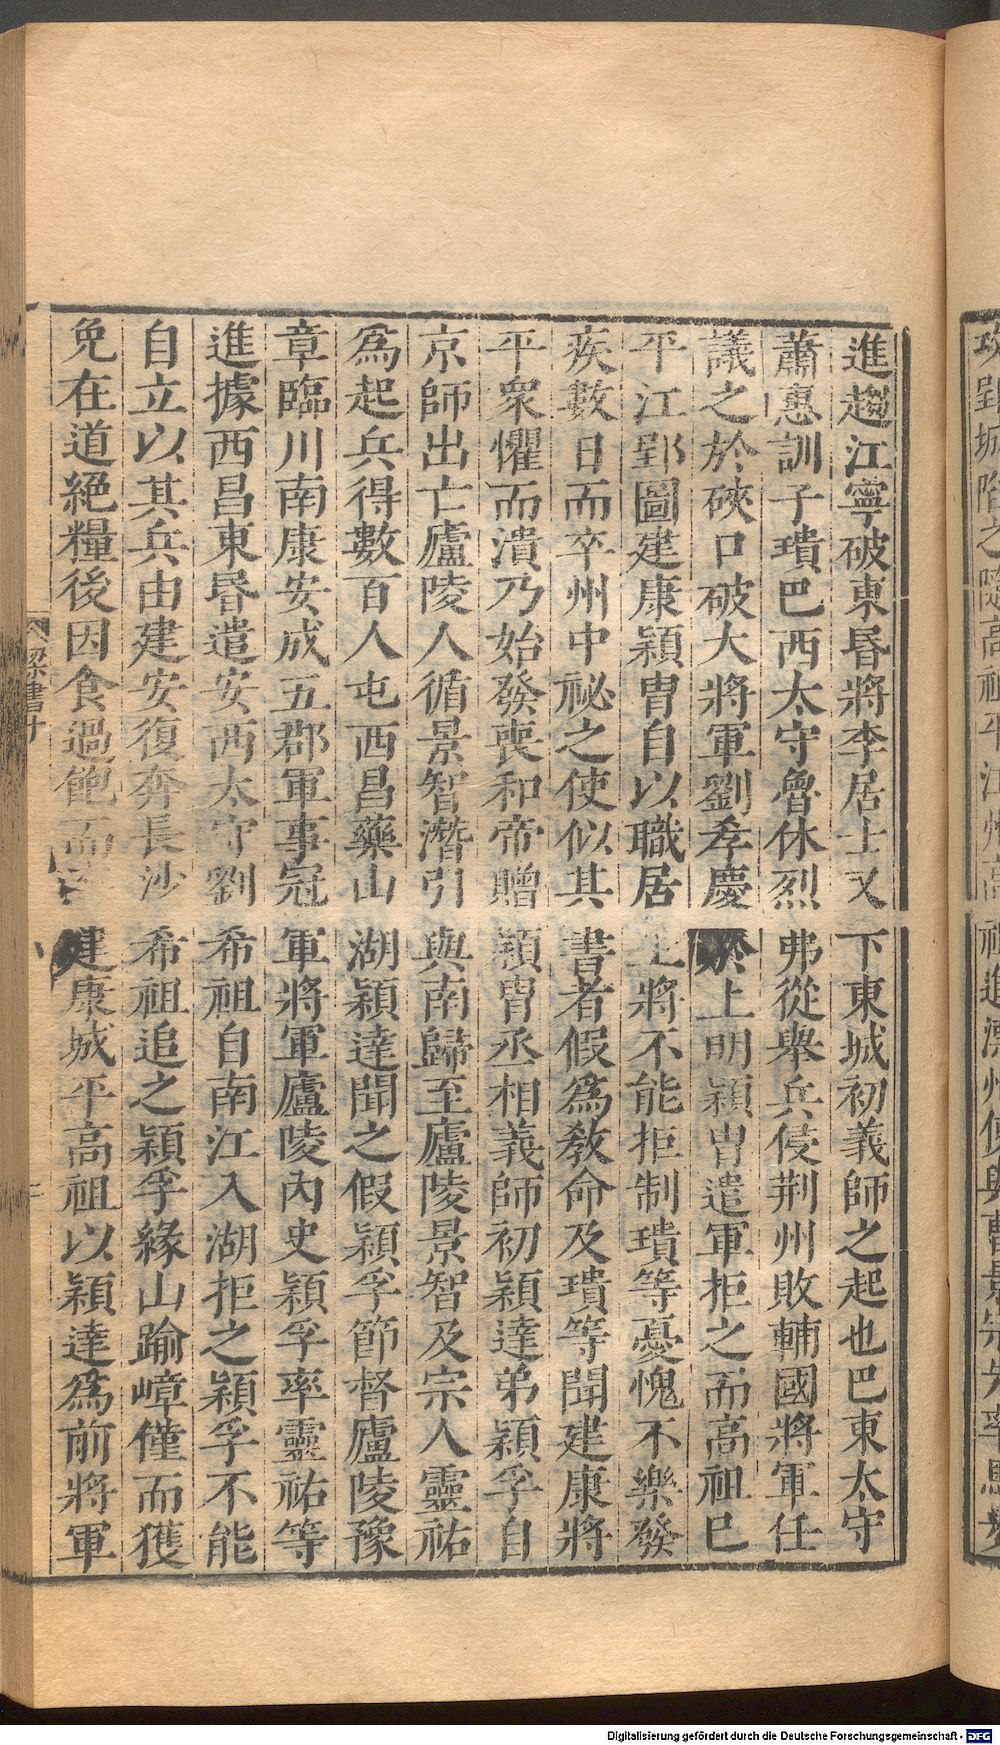 郢城陷之隨高祖平江州高祖進漂州使與曹景宗先率馬步
進趨江寧破東昬將李居士又下東城初義師之起也巴東太守
蕭惠訓子璝巴西太守魯休烈弗從舉兵侵荆州敗輔國將軍任
議之於硤口破大將軍劉孝慶於上明穎胄遣軍拒之而高祖已
平江郢圖建康穎胄自以職居上將不能拒制璝等憂愧不樂發
疾數日而卒州中祕之使似其書者假爲教命及璝等聞建康將
平衆懼而潰乃始發喪和帝贈穎胄丞相義師初穎達弟穎孚自
京師出亡廬陵人循景智潛引與南歸至廬陵景智及宗人靈祐
爲起兵得數百人屯西昌藥山湖穎達聞之假穎孚節督廬陵豫
章臨川南康安成五郡軍事冠軍將軍廬陵內史穎孚率靈祐等
進據西昌東昬遣安西太守劉希祖自南江入湖拒之穎孚不能
自立以其兵由建安復奔長沙希祖追之穎孚緣山踰嶂僅而獲
免在道絕糧後因食過飽而卒建康城平高祖以穎達爲前將軍
梁書十
二
Digitalisierung gefördert durch die Deutsche Forschungsgemeinschaft - DFG